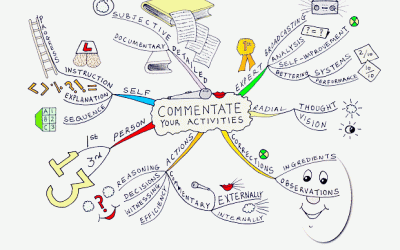 SUBJECTIVE
DOCUMENTARY
DETAILED
L
INSTRUCTION
EXPLANATION
SEQUENCE
A 1
B 2
C 3
SELF
COMMENTATE
YOUR ACTIVITIES
EXPERT
BROADCASTING
ANALYSIS
SELF-IMPROVEMENT
BETTERING
SYSTEMS
PERFORMANCE
RADIAL
THOUGHT
VISION
CORRECTIONS
INGREDIENTS
OBSERVATIONS
ACTIONS
COMMENTARY
EXTERNALLY
INTERNALLY
REASONING
DECISIONS
WITNESSING
EFFICIENCY
PERSON
1st
3rd
13